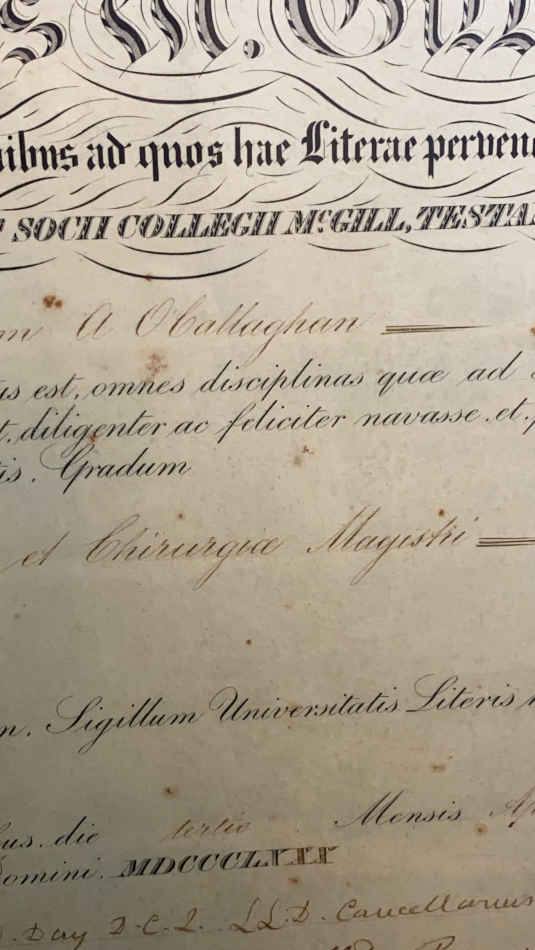 s M. Gill
nibus ad quos hae Literae pervene
SOCII COLLEGII McGILL, TESTA
m A O'Callaghan
us est, omnes disciplinas quæ ad
t, diligenter ac feliciter navasse. et.
tis. Gradum
et Chirurgiæ Magistri
m. Sigillum Universitatis Literis
bus. die tertio Mensis Ap
Domini. MDCCCLXXII
Day D.C.L. LL.D. Cancellarius